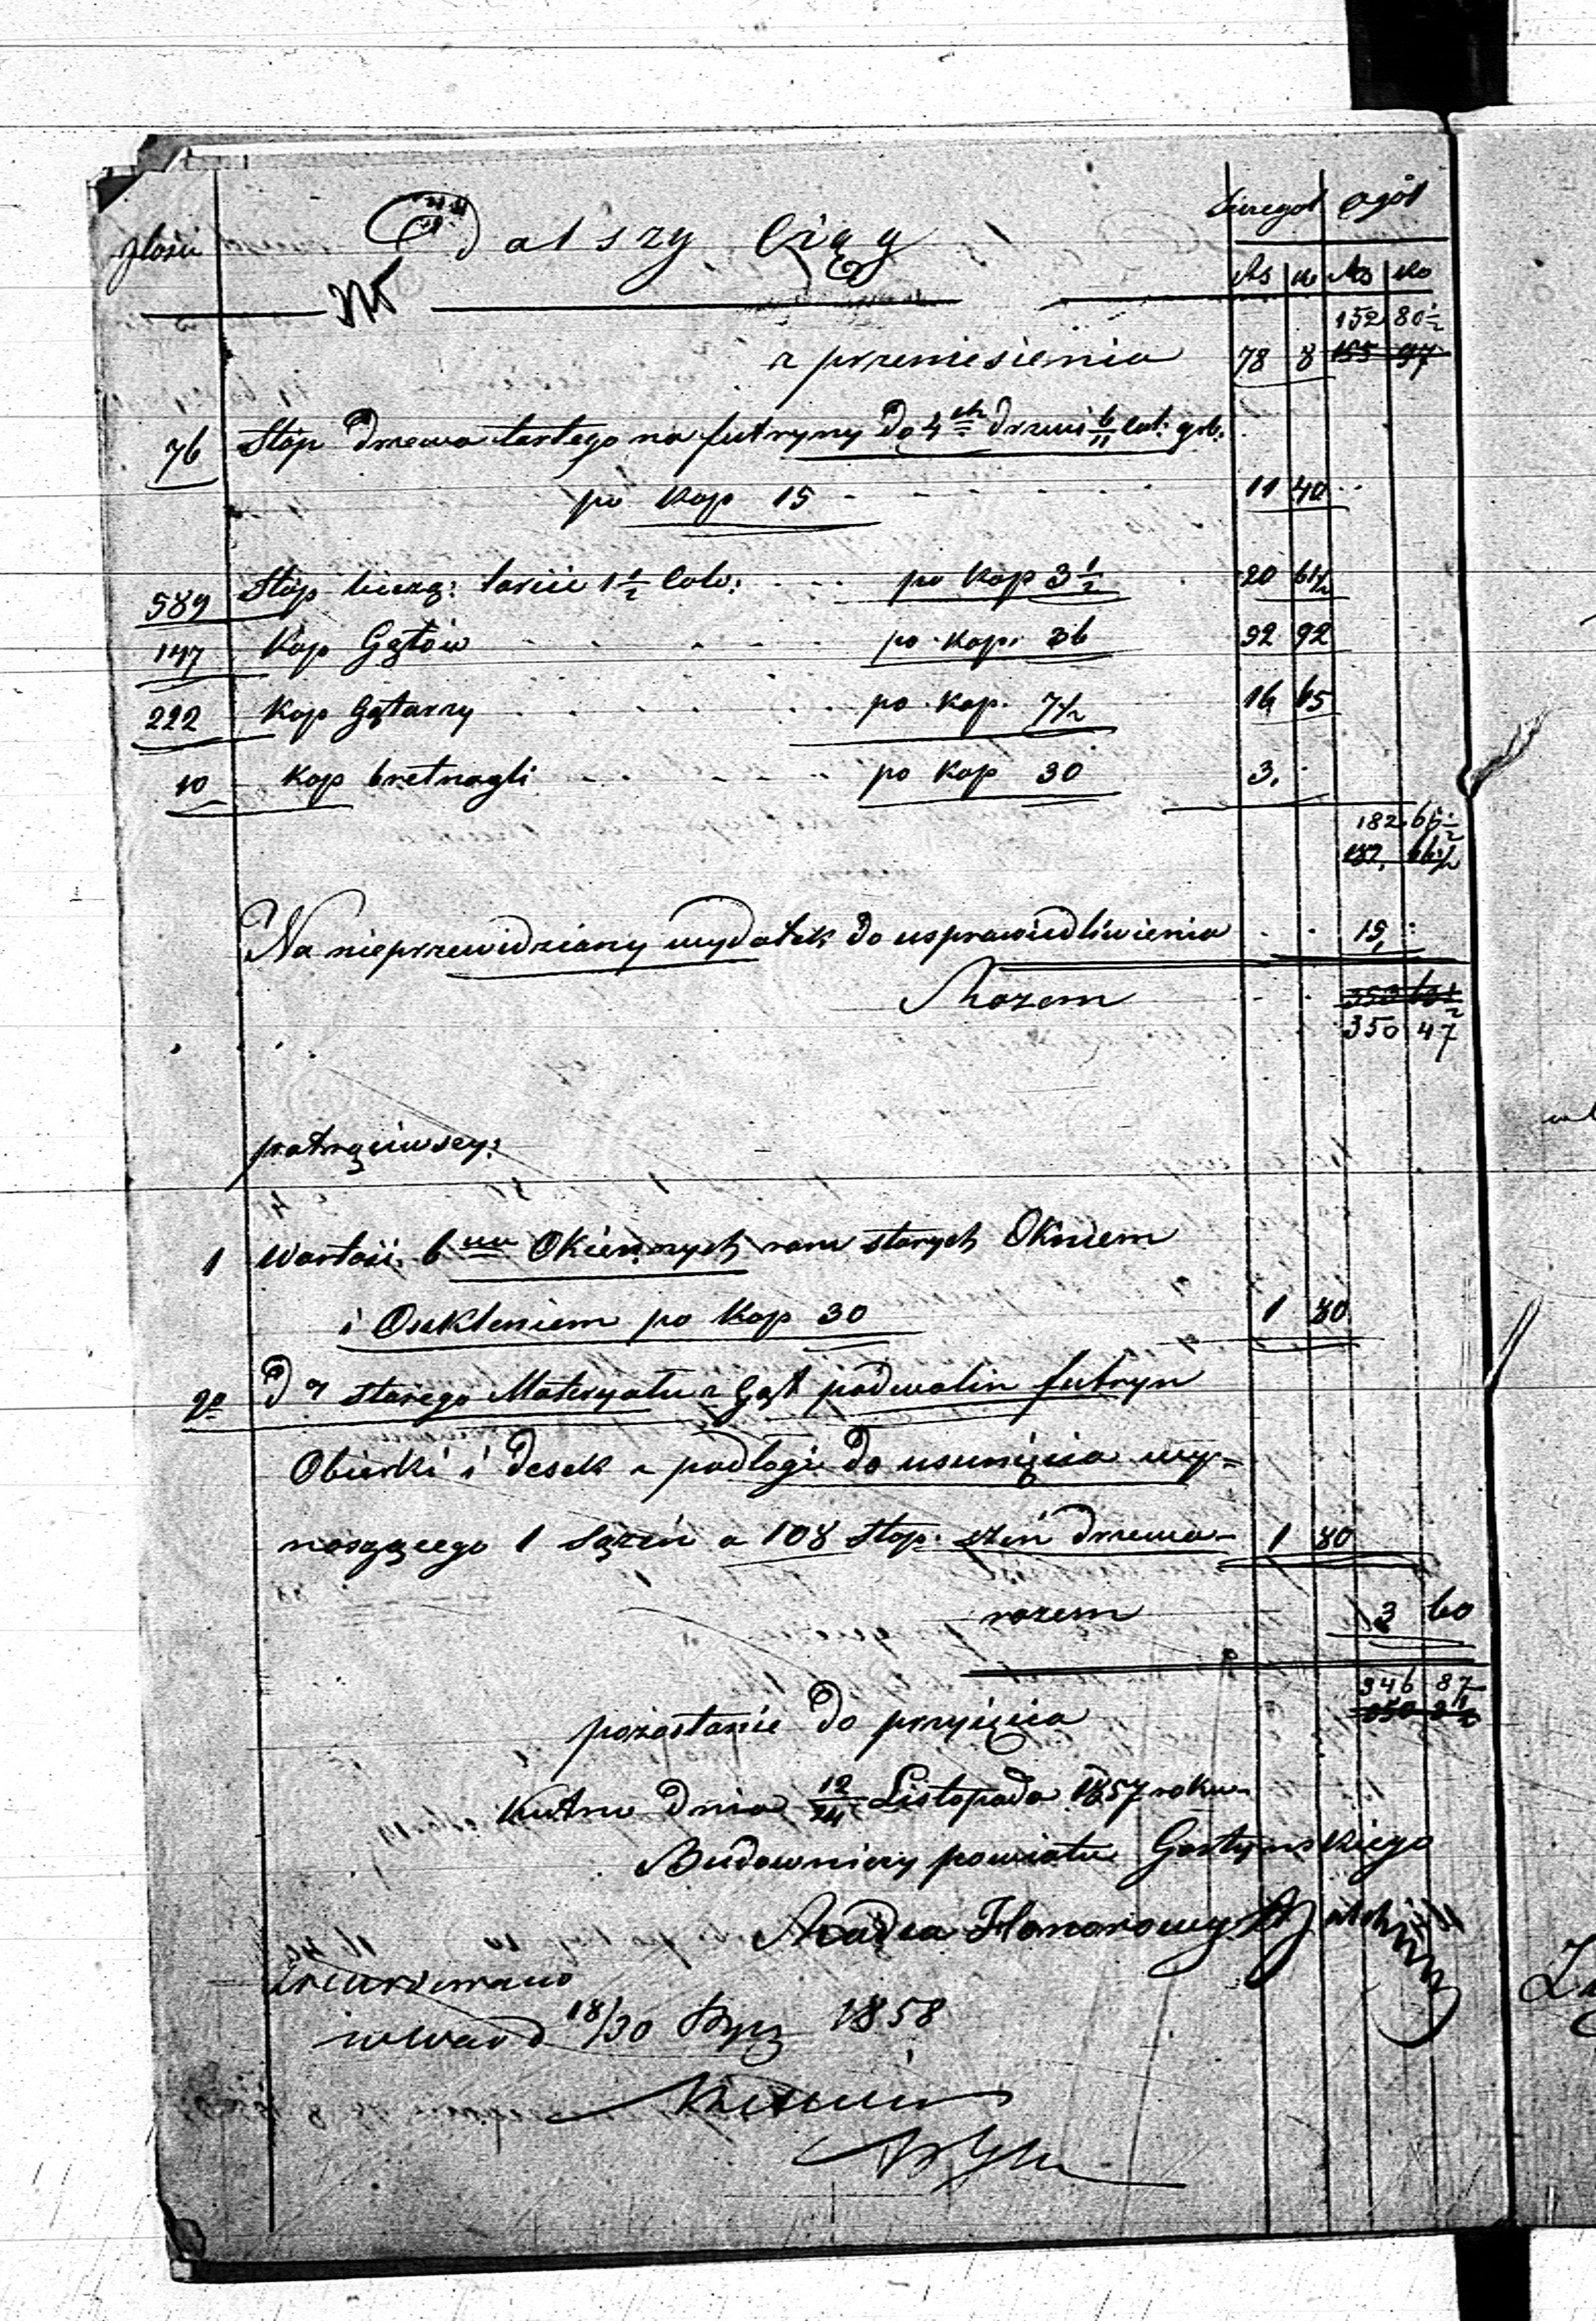 Ilość Dalszy Ciąg Szczegół Ogół
Rs k Rs ko
152 80½
z przeniesienia 78 8 155 97
76 Stóp drzewa tartego na futryny do 4ch drzwi 6/11 cal: grb.
po kop 15 11 40
589 Stóp bieżą: tarcic 1½ calo: po kop 3½ 20 61½
147 Kop Gątów po kop. 36 52 92
222 Kop Gątarzy po kop. 7½ 16 65
10 Kop bretnagli po kop 30 3.
182 66½
182 66½
Na nieprzewidziany wydatek do usprawiedliwienia 15
Razem 353 63½
350 47
potrąciwszy:
1 Wartość 6ciu Okiennych ram starych Okuciem
i Oszkleniem po kop 30 1 80
2o D° starego Materyału z Gąt podwalin futryn
Obierki i desek z podłogi do usunięcia wy=
noszącego 1 Sążeń a 108 Stop. sześć drzewa 1 80
razem 3 60
346 87
pozostanie do przyjęcia
Kutno dnia 12/24 Listopada 1857 roku
Budowniczy powiatu Gostyńskiego
Radca Honorowy
Zrewidowano
18/30 Stycz 1858